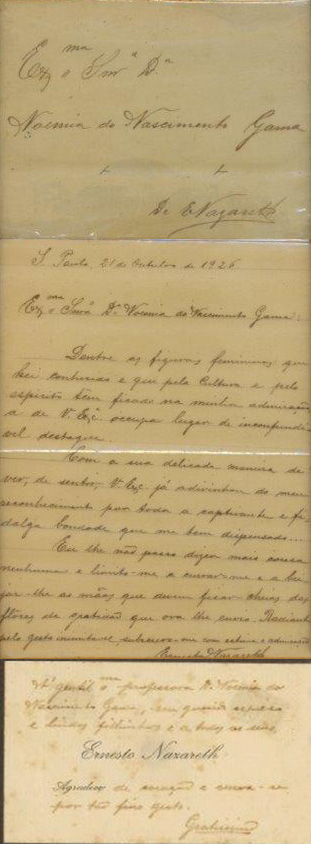 Exma Snrª Dª
Noemia do Nascimento Gama
De E Nazareth
S. Paulo, 21 de Outubro de 1926
Exma Snrª Dª Noemia do Nascimento Gama:
Dentre as figuras femininas que
hei conhecido e que pela cultura e pelo
espirito tem ficado na minha admiração,
a de V. Exª occupa lugar de inconfundi-
vel destaque.
Com a sua delicada maneira de
ver, de sentir, V. Exª já adivinhou do meu
reconhecimento por toda a captivante e fi-
dalga bondade que me tem dispensado...
Eu lhe não posso dizer mais coisa
nenhuma e limito-me a curvar-me e a bei-
jar-lhe as mãos que devem ficar cheias das
flores de gratidão que ora lhe envio. Radiante
pelo gesto inimitavel, subscrevo-me com estima e admiração
Ernesto Nazareth
Á gentil Exma professora D. Noemia do
Nascimento Gama, seu querido esposo
e lindos filhinhos e a todos os seus,
Ernesto Nazareth
Agradece de coração e curva-se
por tão fino gesto.
Gratissimo